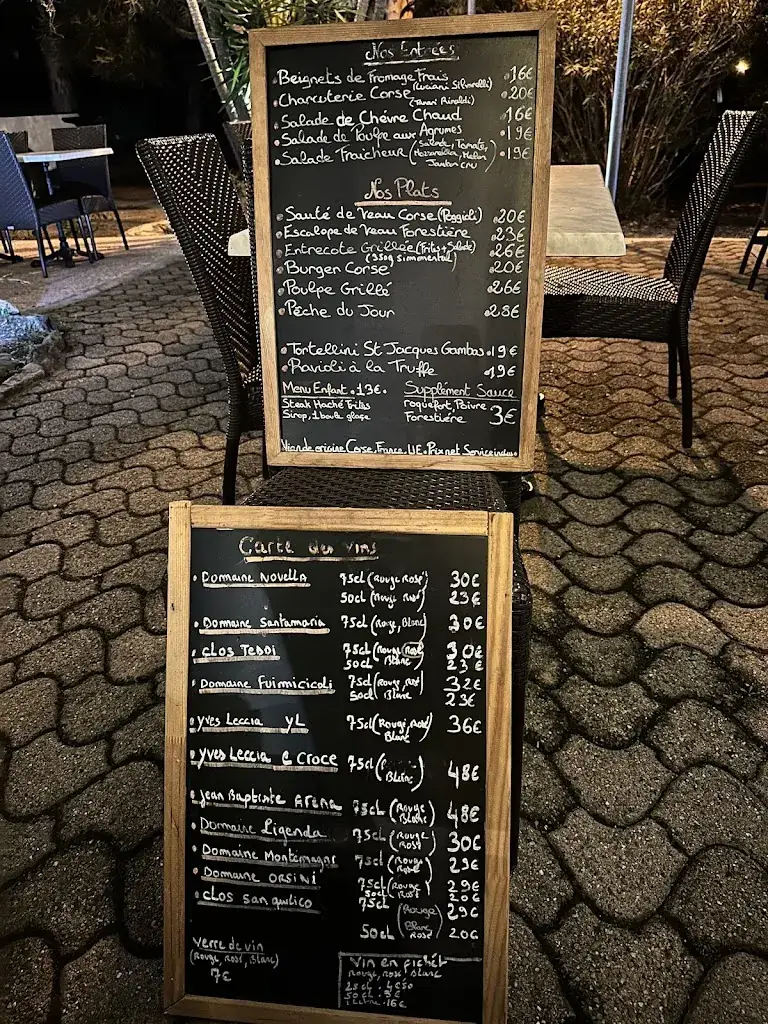 Nos Entrées
Beignets de Fromage Frais 16€
Charcuterie Corse 20€
Salade de Chévre Chaud 16€
Salade de Poulpe aux Agrumes 19€
Salade Fraicheur (Salade, Tomate, 19€
Mozzarella, Melon
Jambon cru)
Nos Plats
Sauté de Veau Corse 20€
Escalope de Veau Forestière 23€
Entrecote Grillée (Frites + Salade) 26€
(350g simmental)
Burger Corse 20€
Poulpe Grillé 26€
Pêche du Jour 28€
Tortellini St Jacques Gambas 19€
Ravioli à la Truffe 19€
Menu Enfant 13€
Steak Haché Frites
Sirop, 1 boule glace
Supplément Sauce
roquefort, Poivre
Forestière 3€
Viande origine Corse, France, UE. Prix net Service inclus
Carte des vins
Domaine Novella 75cl (Rouge Rosé) 30€
50cl (Rouge Rosé) 23€
Domaine Santamaria 75cl (Rouge, Blanc) 30€
Clos Teddi 75cl (Rouge Rosé 30€
50cl Blanc) 23€
Domaine Fuimicicoli 75cl (Rouge, Rosé 32€
50cl Blanc) 23€
Yves Leccia YL 75cl (Rouge, Rosé 36€
Blanc)
Yves Leccia E Croce 75cl ( Blanc) 48€
Jean Baptiste Arena 75cl (Rouge 48€
Blanc)
Domaine Ligenda 75cl (Rouge 30€
Rosé)
Domaine Montemagni 75cl (Rouge 29€
Rosé)
Domaine Orsini 75cl (Rouge 29€
50cl Rosé) 20€
Clos san quilico 75cl (Rouge 29€
Blanc
50cl Rosé) 20€
Verre de vin
(Rouge, Rosé, Blanc)
7€
Vin en pichet
Rouge, rosé, blanc
25cl : 4€50
50cl : 9€
1 Litre : 16€